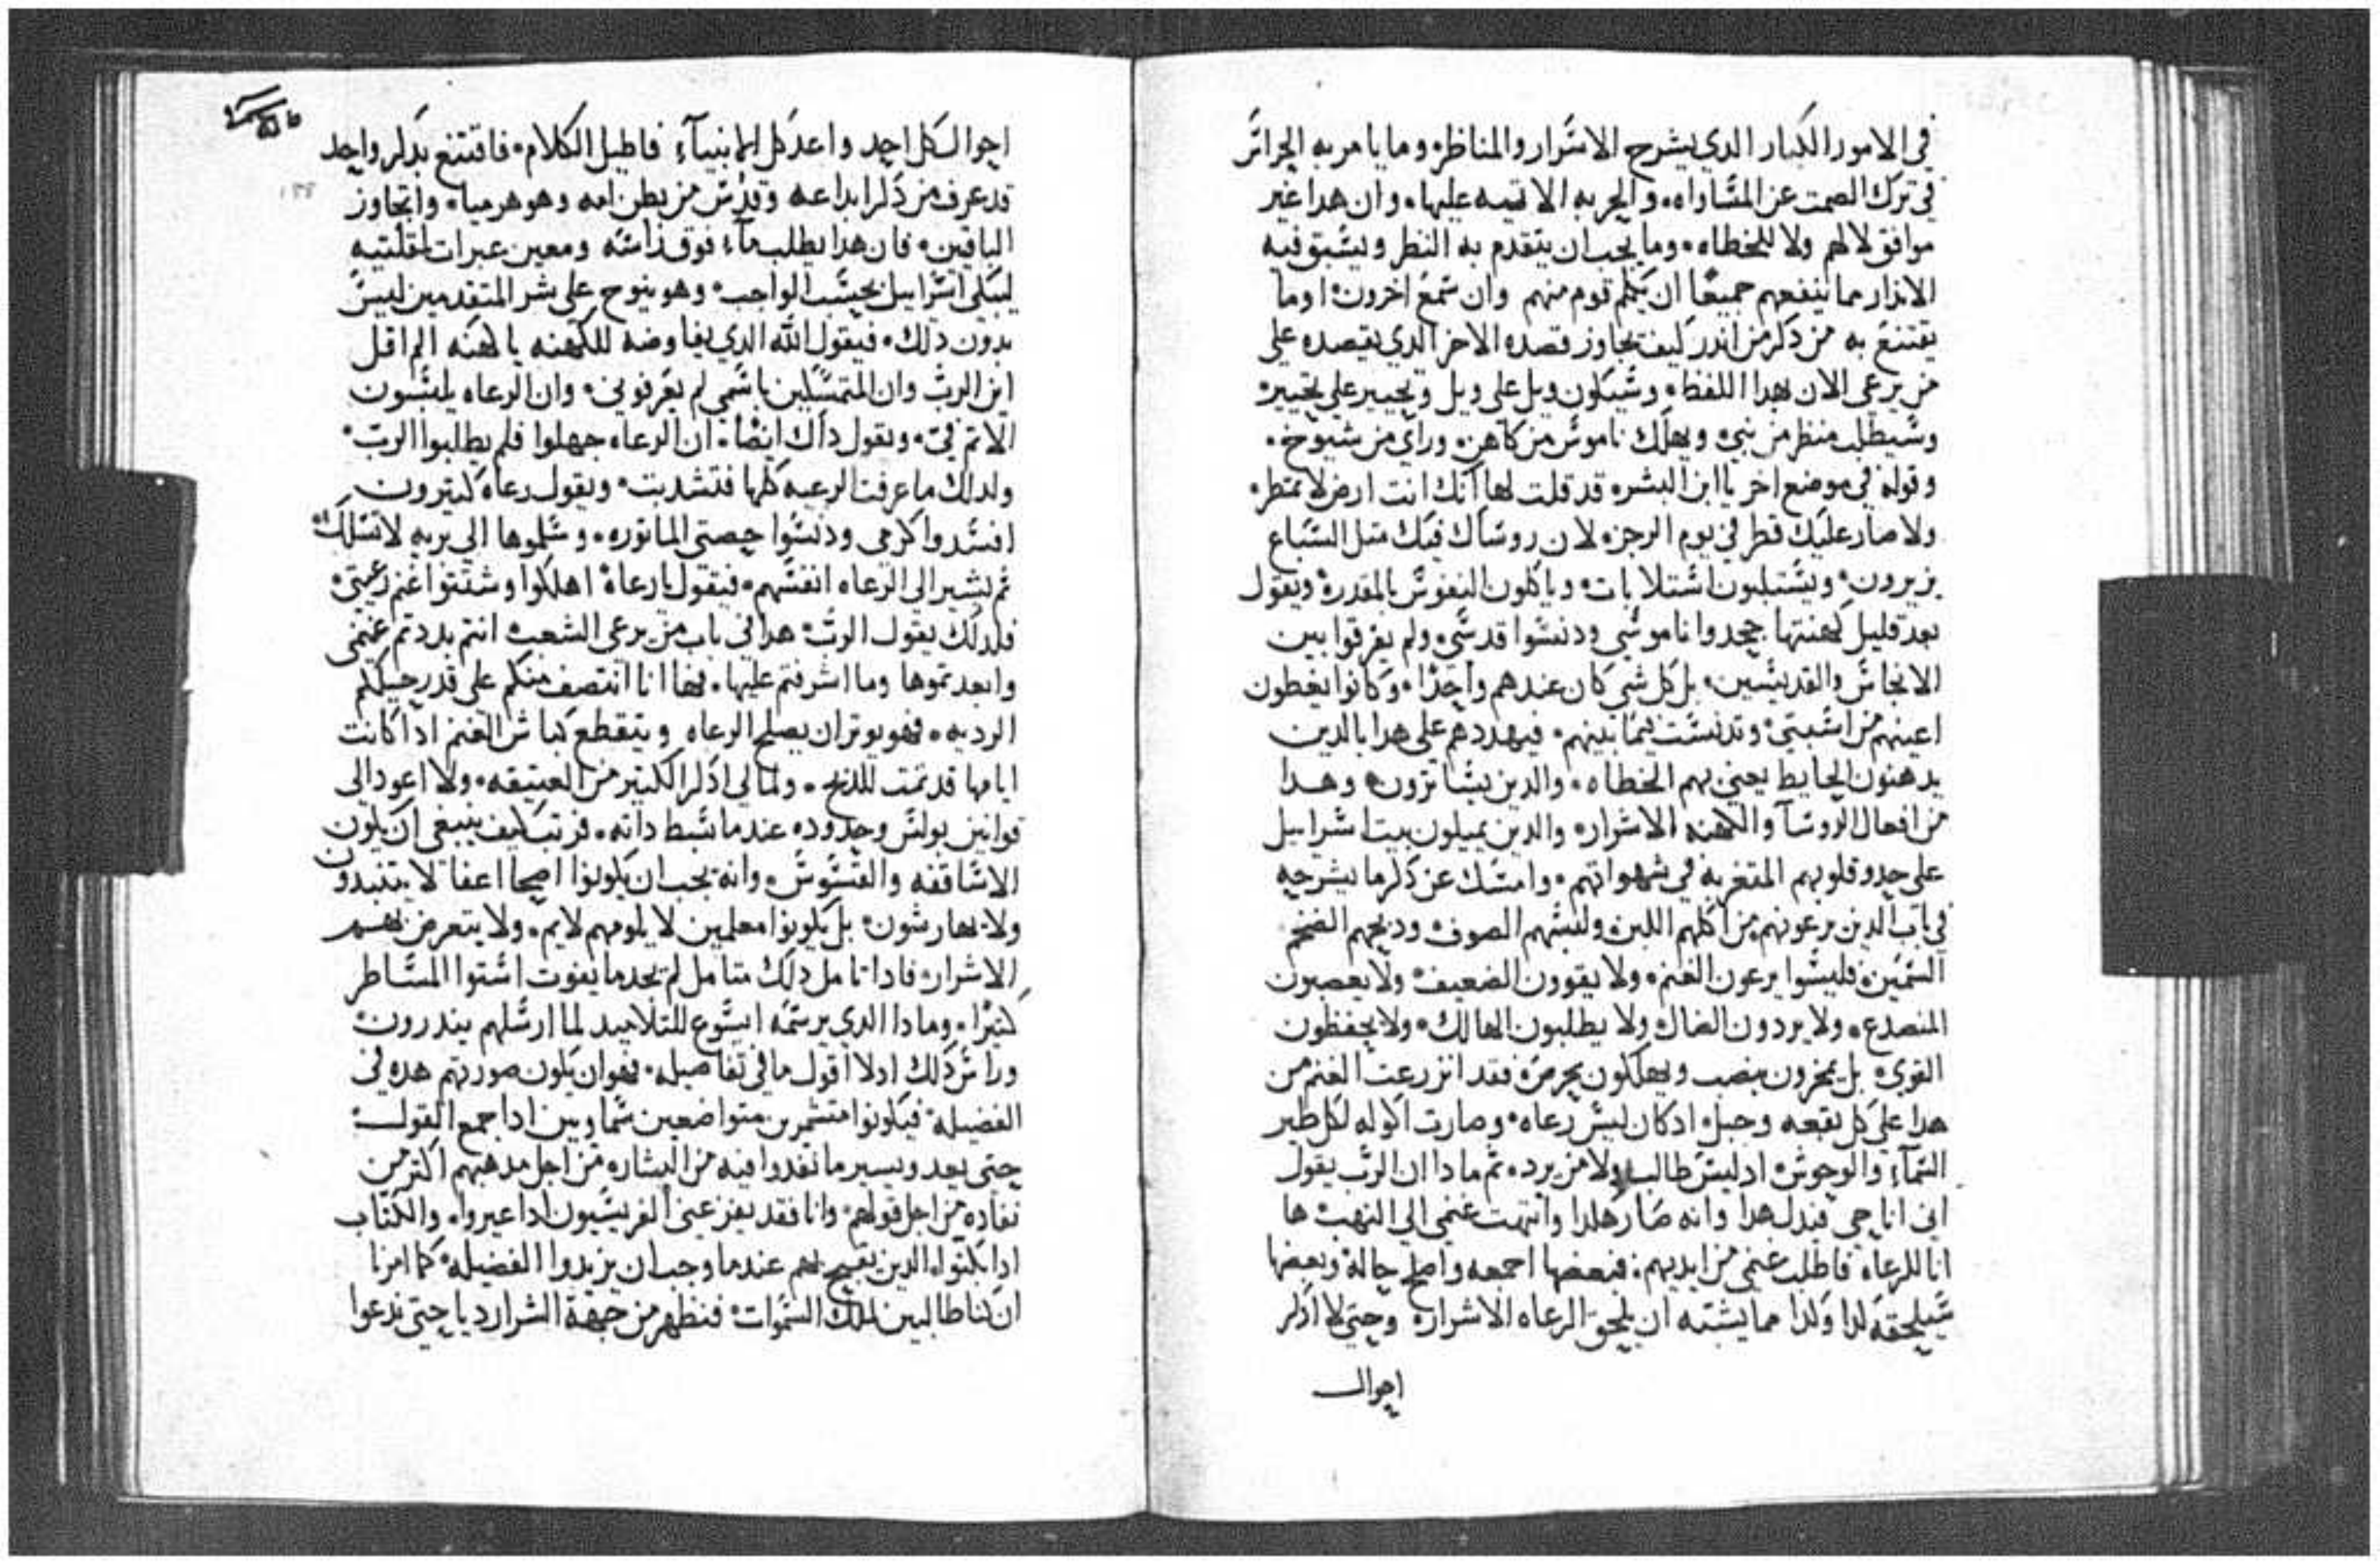 في الامور الكبار الدي يشرح الاسرار والمناظره وما يامر به الجراتر
في ترك الصمت عن المساواه والحربه الاتيه عليها، وان هدا غير
موافق لا لهم ولا للخطاه، وما يجب ان يتقدم به النظر ويسبق فيه
الاندار مما ينفعهم جميعًا ان تكلم قوم منهم وان سمع اخرون او ما
يقتنع به من دكر من اندر كيف تجاوز قصده الاخر الدي يقصده على
من يرعى الان بهدا اللفظ، وسيكون ويل على ويل وتحيير على تحيير
وسيطلب منظر من نبي ويهلك ناموس من كاهن وراي من شيوخ.
وقوله في موضع اخر يا ابن البشر قد قلت لها انك انت ارض لا تمطر
ولا صار عليك قطر في يوم الرجز لان روساك فيك متل السباع
يزيرون ويستلبون استلابات وياكلون النفوس بالمقدره ويقول
بعد قليل كهنتها جحدوا ناموسي ودنسوا قدسي ولم يفرقوا بين
الانجاس والقديسين، بل كل شي كان عندهم واحدًا، وكانوا يغطون
اعينهم من اسبتي وتدنست فيما بينهم، فيهددهم على هدا بالدين
يدهنون الحايط يعني بهم الخطاه، والدين يتساترون وهدا
من افعال الروسا والكهنه الاشرار والدين يميلون بيت اسراييل
على حدو قلوبهم المتغربه في شهواتهم، وامسك عن دكر ما يشرحه
في باب الدين يرعونهم من اكلهم اللبن ولبسهم الصوف ودبحهم الضخم
السمين فليسوا يرعون الغنم ولا يقوون الضعيف ولا يعصبون
المنصدع، ولا يردون الضال ولا يطلبون الهالك، ولا يحفظون
القوي بل يمخرون بنصب ويهلكون بحرص فقد انزرعت الغنم من
هدا على كل بقعه وجبل ادكان ليس رعاه، وصارت اكوله لكل طير
السماء والوحوش ادليس طالب ولا من يرد، تم مادا ان الرب يقول
اني انا حي فبدل هدا وانه صار هكدا وانتهت غنمي الى النهب ها
انا للرعاه فاطلب غنمي من ايديهم، فبعضها اجمعه واصلح حاله وبعضها
سيلحقه كدا وكدا مما يشبه ان يلحق الرعاه الاشرار وحتى لا ادكر
احوال
احوال كل احد واعد كل الانبياء فاطيل الكلام، فاقتنع بدكر واحد
قد عرف من دكر ابداعه وقدس من بطن امه وهو هرميا، واتجاوز
الباقين، فان هدا يطلب ماء فوق راسه ومعين عبرات لمقلتيه
ليبكي اسراييل بحسب الواجب، وهو ينوح على شر المتقدمين ليس
بدون دلك، فيقول الله الدي يفاوضه للكهنه يا كهنه الم اقل
اين الرب وان المتمسكين باسمي لم يعرفوني، وان الرعاه يلتبسون
الاتم في، ويقول داك ايضًا، ان الرعاه جهلوا فلم يطلبوا الرب.
ولدلك ما عرفت الرعيه كلها فتشدبت ويقول رعاه كتيرون
افسدوا كرمي ودنسوا حصتي الماتوره، وسلموها الى بريه لا تسلك
تم يشير الى الرعاه انفسهم، فيقول يا رعاه اهلكوا وشتتوا غنم رعيتي
فلدلك يقول الرب هدا في باب من يرعى الشعب انتم بددتم غنمي
وابعدتموها وما اشرفتم عليها، فها انا انتصف منكم على قدر حيلكم
الرديه، فهو يوتر ان يصلح الرعاه ويتقطع كباش الغنم اداكانت
ايامها قد تمت للدبح، ومالي ادكر الكتير من العتيقه، ولا اعود الى
قوانين بولس وحدوده عندما بسط داته، فرتب كيف ينبغي ان يكون
الاساقفه والقسوس، وانه يجب ان يكونوا اصحا اعفا لا يتنبدون
ولا يهارشون، بل يكونوا معلمين لا يلومهم لايم، ولا يتعرض بهم
الاشرار، فادا تامل دلك متامل لم يجد ما يفوت استوا المساطر
كتيرًا، ومادا الدي يرسمه ايسوع للتلاميد لما ارسلهم ينددرون
وراس دلك ادلا اقول ما في تفاصيله، فهو ان يكون صورتهم هده في
الفضيله فيكونوا متشمرين متواضعين سماويين ادا جمع القول
حتى يعد ويسير ما نفدوا فيه من البشاره من اجل مدهبهم اكتر من
نفاده من اجل قولهم، وانا فقد يفزعني الفريسيون اداعيروا، والكتاب
ادا بكتوا، الدين يقبح بهم عندما وجب ان يزيدوا الفضيله كما امرنا
ان كنا طالبين ملك السموات، فنظهر من جهة الشر اردياحتى ندعوا